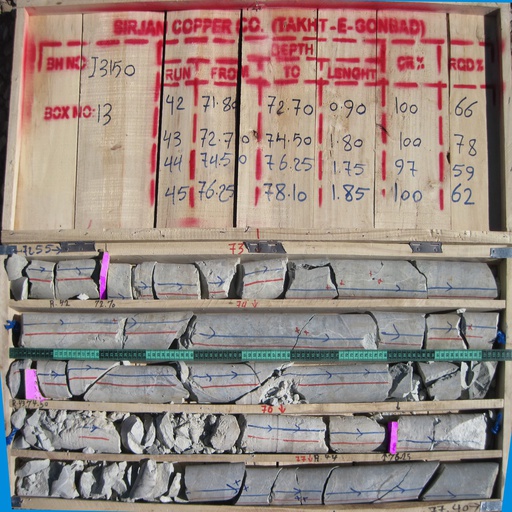 SIRJAN COPPER CO. (TAKHT-E-GONBAD)
DEPTH
BH NO: J3150 RUN FROM TO LENGHT CR% RQD%
BOX NO: 13 42 71.80 72.70 0.90 100 66
43 72.70 74.50 1.80 100 78
44 74.50 76.25 1.75 97 59
45 76.25 78.10 1.85 100 62
73
R.42 72.70 74
76
R44
77.40